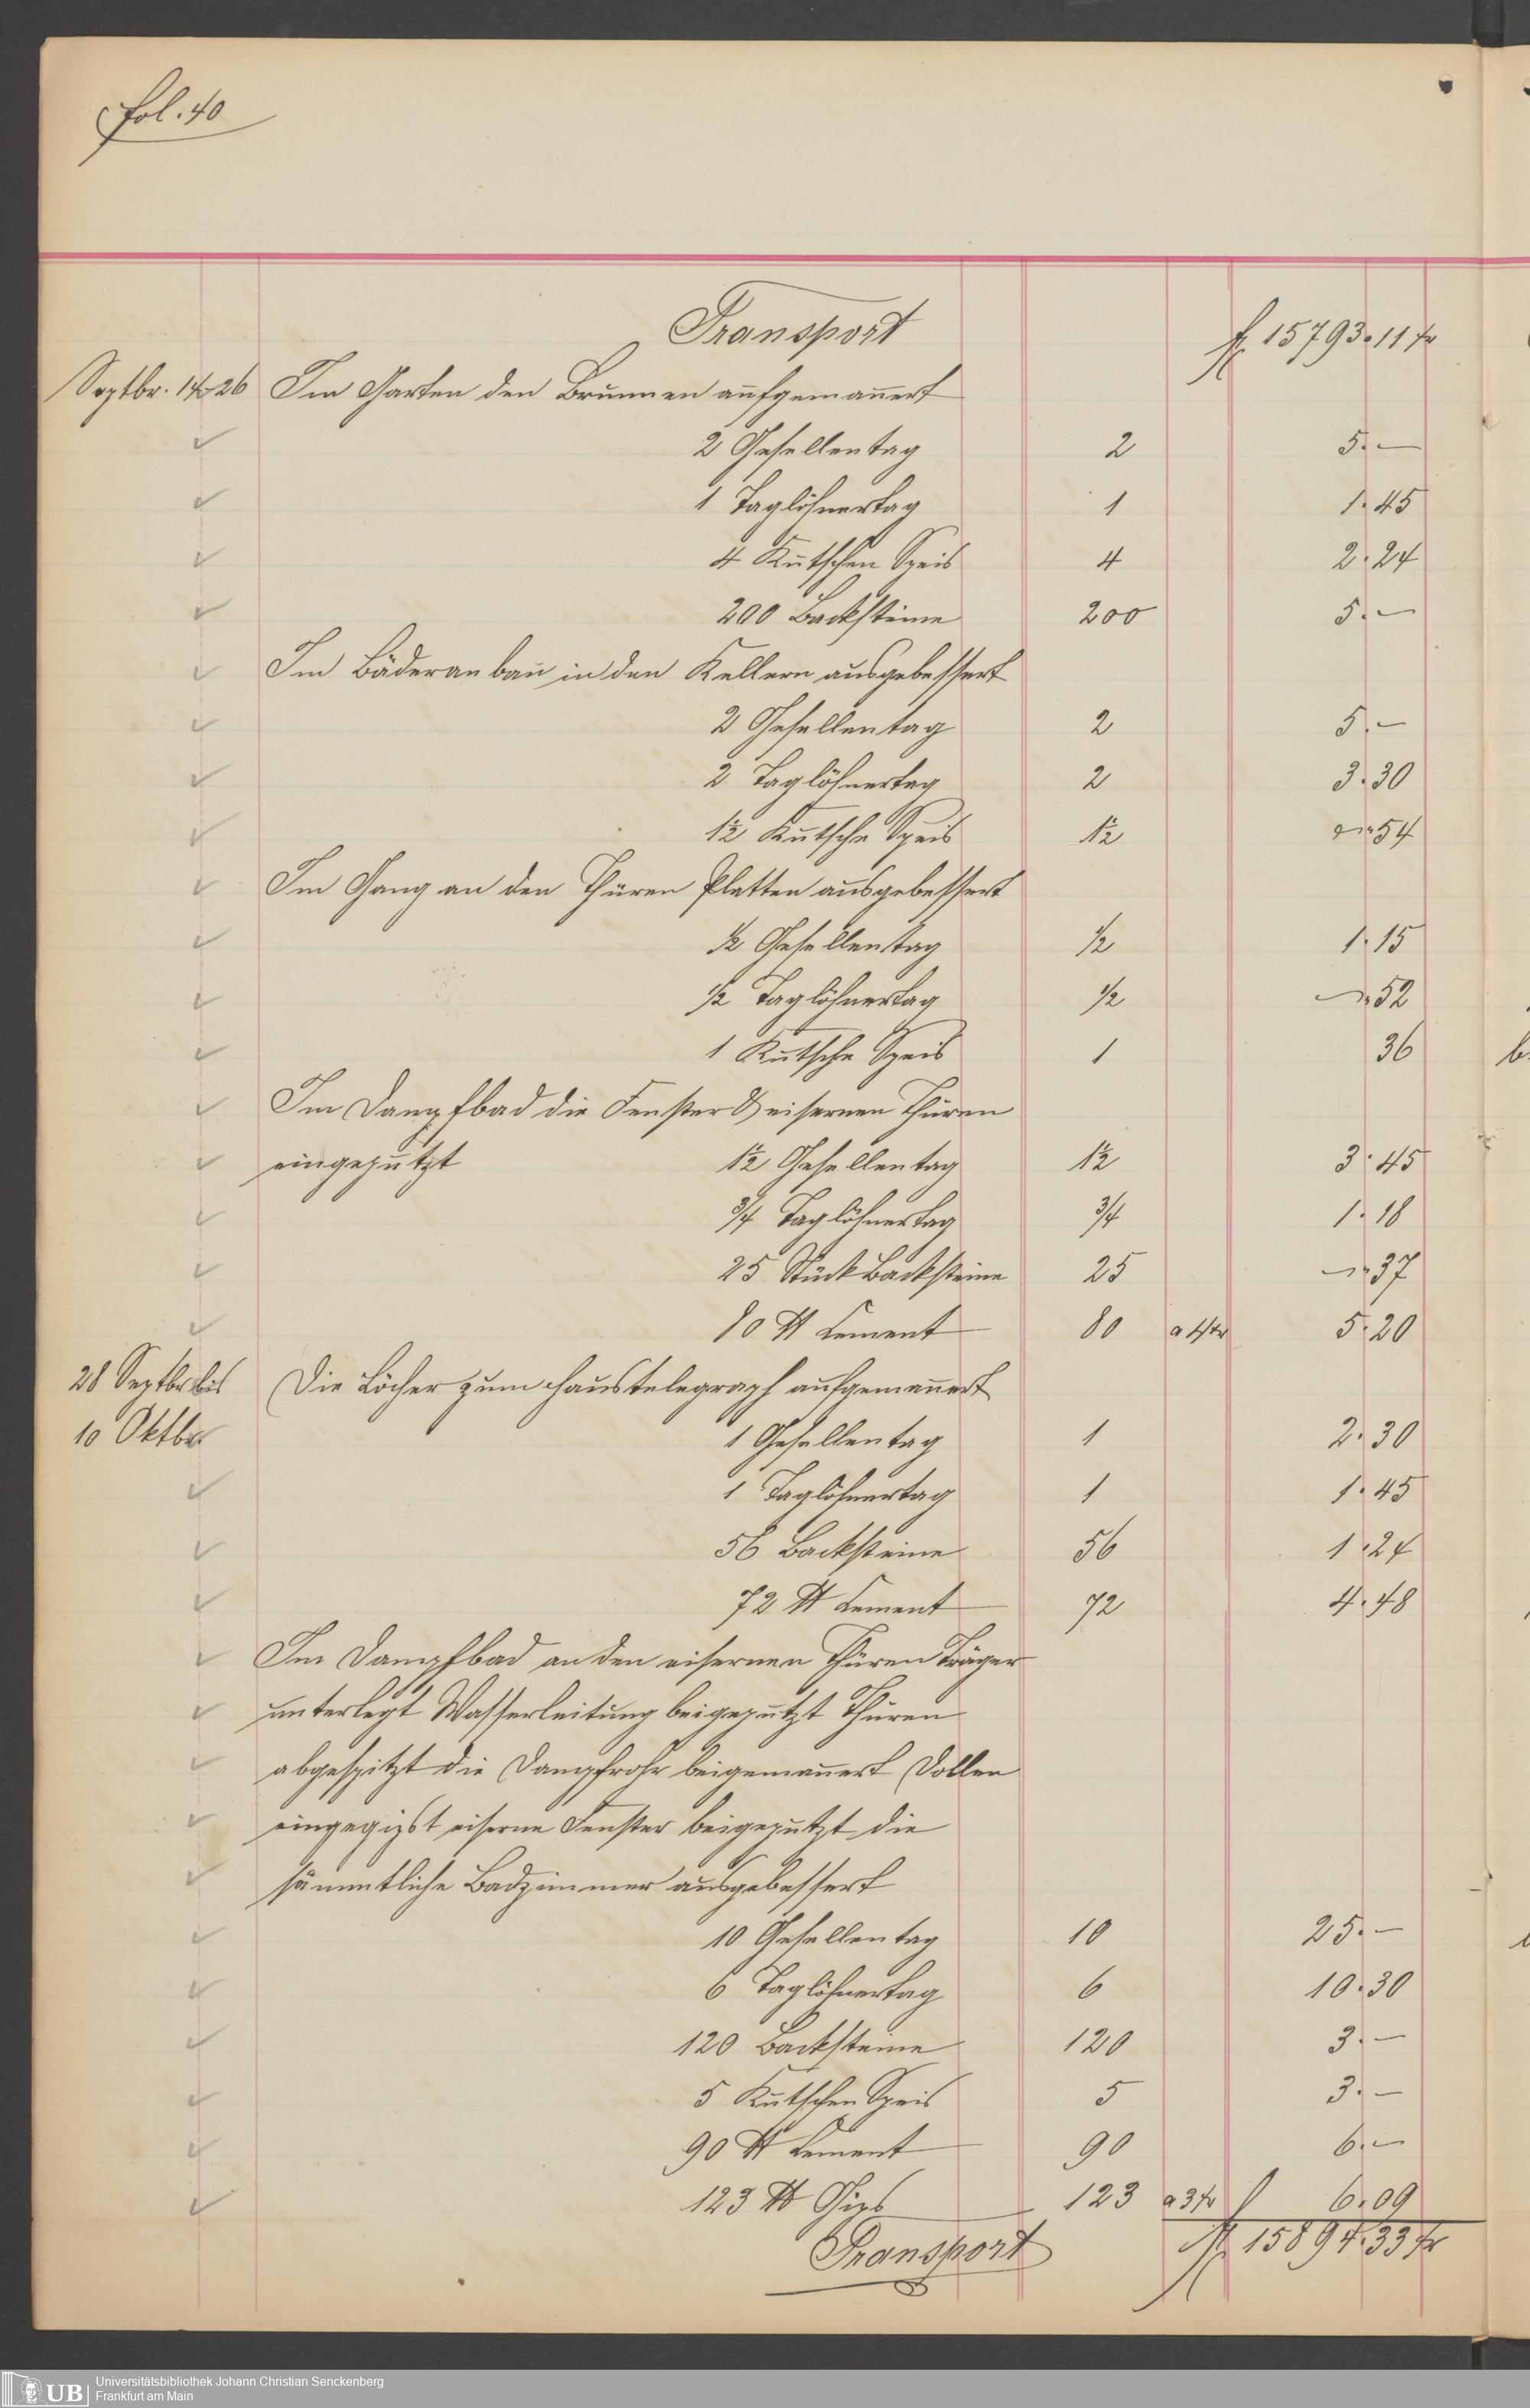 fol. 40
Transport fl 15793. 11 kr
Septbr. 14-26 Im Garten den Brunnen aufgemauert
2 Gesellentag 2 5. —
1 Taglöhnertag 1 1. 45
4 Kutschen Speis 4 2. 24
200 Backsteine 200 5. —
Im Bäderanbau in den Kellern ausgebessert
2 Gesellentag 2 5. —
2 Taglöhnertag 2 3. 30
1½ Kutsche Speis 1½ — 54
Im Gang an den Thüren Platten ausgebessert
½ Gesellentag ½ 1. 15
½ Taglöhnertag ½ — 52
1 Kutsche Speis 1 36
Im Dampfbad die Fenster & eisernen Thüren
eingeputzt 1½ Gesellentag 1½ 3. 45
¾ Taglöhnertag ¾ 1. 18
25 Stück Backsteine 25 — 37
80 ℔ Cement 80 a 4 kr 5. 20
28 Septbr bis Die Löcher zum Haustelegraph aufgemauert
10 Oktbr. 1 Gesellentag 1 2. 30
1 Taglöhnertag 1 1. 45
56 Backsteine 56 1. 24
72 ℔ Cement 72 4. 48
Im Dampfbad an den eisernen Thüren Träger
unterlegt Wasserleitung beigeputzt Thüren
abgespitzt die Dampfrohr beigemauert Dollen
eingegipst eiserne Fenster beigeputzt die
sämmtliche Badzimmer ausgebessert
10 Gesellentag 10 25. —
6 Taglöhnertag 6 10. 30
120 Backsteine 120 3. —
5 Kutschen Speis 5 3. —
90 ℔ Cement 90 6. —
123 ℔ Gips 123 a 3 kr 6. 09
Transport fl 15894. 33 kr
UB Universitätsbibliothek Johann Christian Senckenberg
Frankfurt am Main